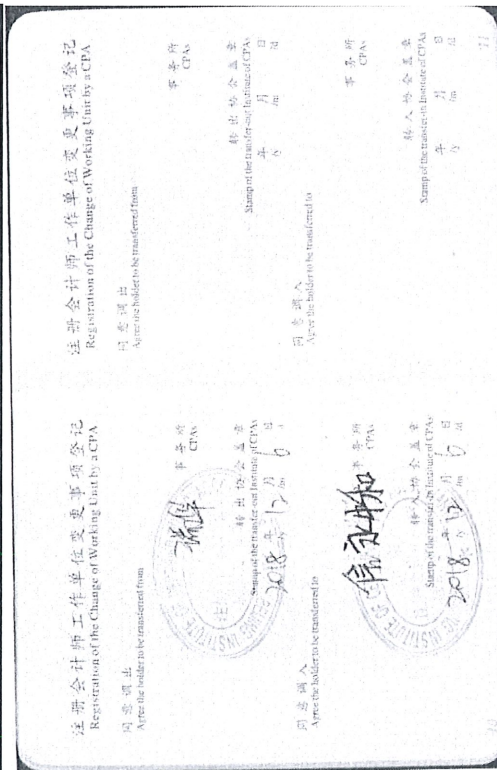 注册会计师工作单位变更事项登记
Registration of the Change of Working Unit by a CPA
同意调出
Agree the holder to be transferred from
瑞华
事务所
CPAs
转出协会盖章
Stamp of the transfer-out Institute of CPAs
2018年12月6日
/y /m /d
同意调入
Agree the holder to be transferred to
信永中和
事务所
CPAs
转入协会盖章
Stamp of the transfer-in Institute of CPAs
2018年12月6日
/y /m /d
10
注册会计师工作单位变更事项登记
Registration of the Change of Working Unit by a CPA
同意调出
Agree the holder to be transferred from
事务所
CPAs
转出协会盖章
Stamp of the transfer-out Institute of CPAs
年 月 日
/y /m /d
同意调入
Agree the holder to be transferred to
事务所
CPAs
转入协会盖章
Stamp of the transfer-in Institute of CPAs
年 月 日
/y /m /d
11